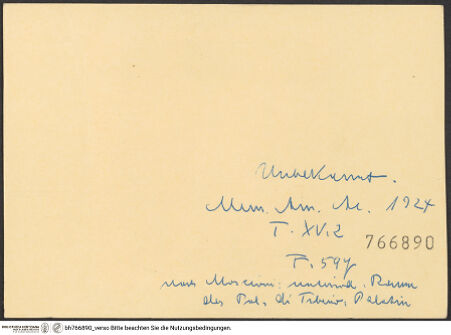 Unbekannt.
Mem. Am. Ac. 1924
T. XV.2
766890
F. 597
nach Moscioni: unterird. Raum
des Pal. di Tiberio, Palatin
bh766890_verso Bitte beachten Sie die Nutzungsbedingungen.